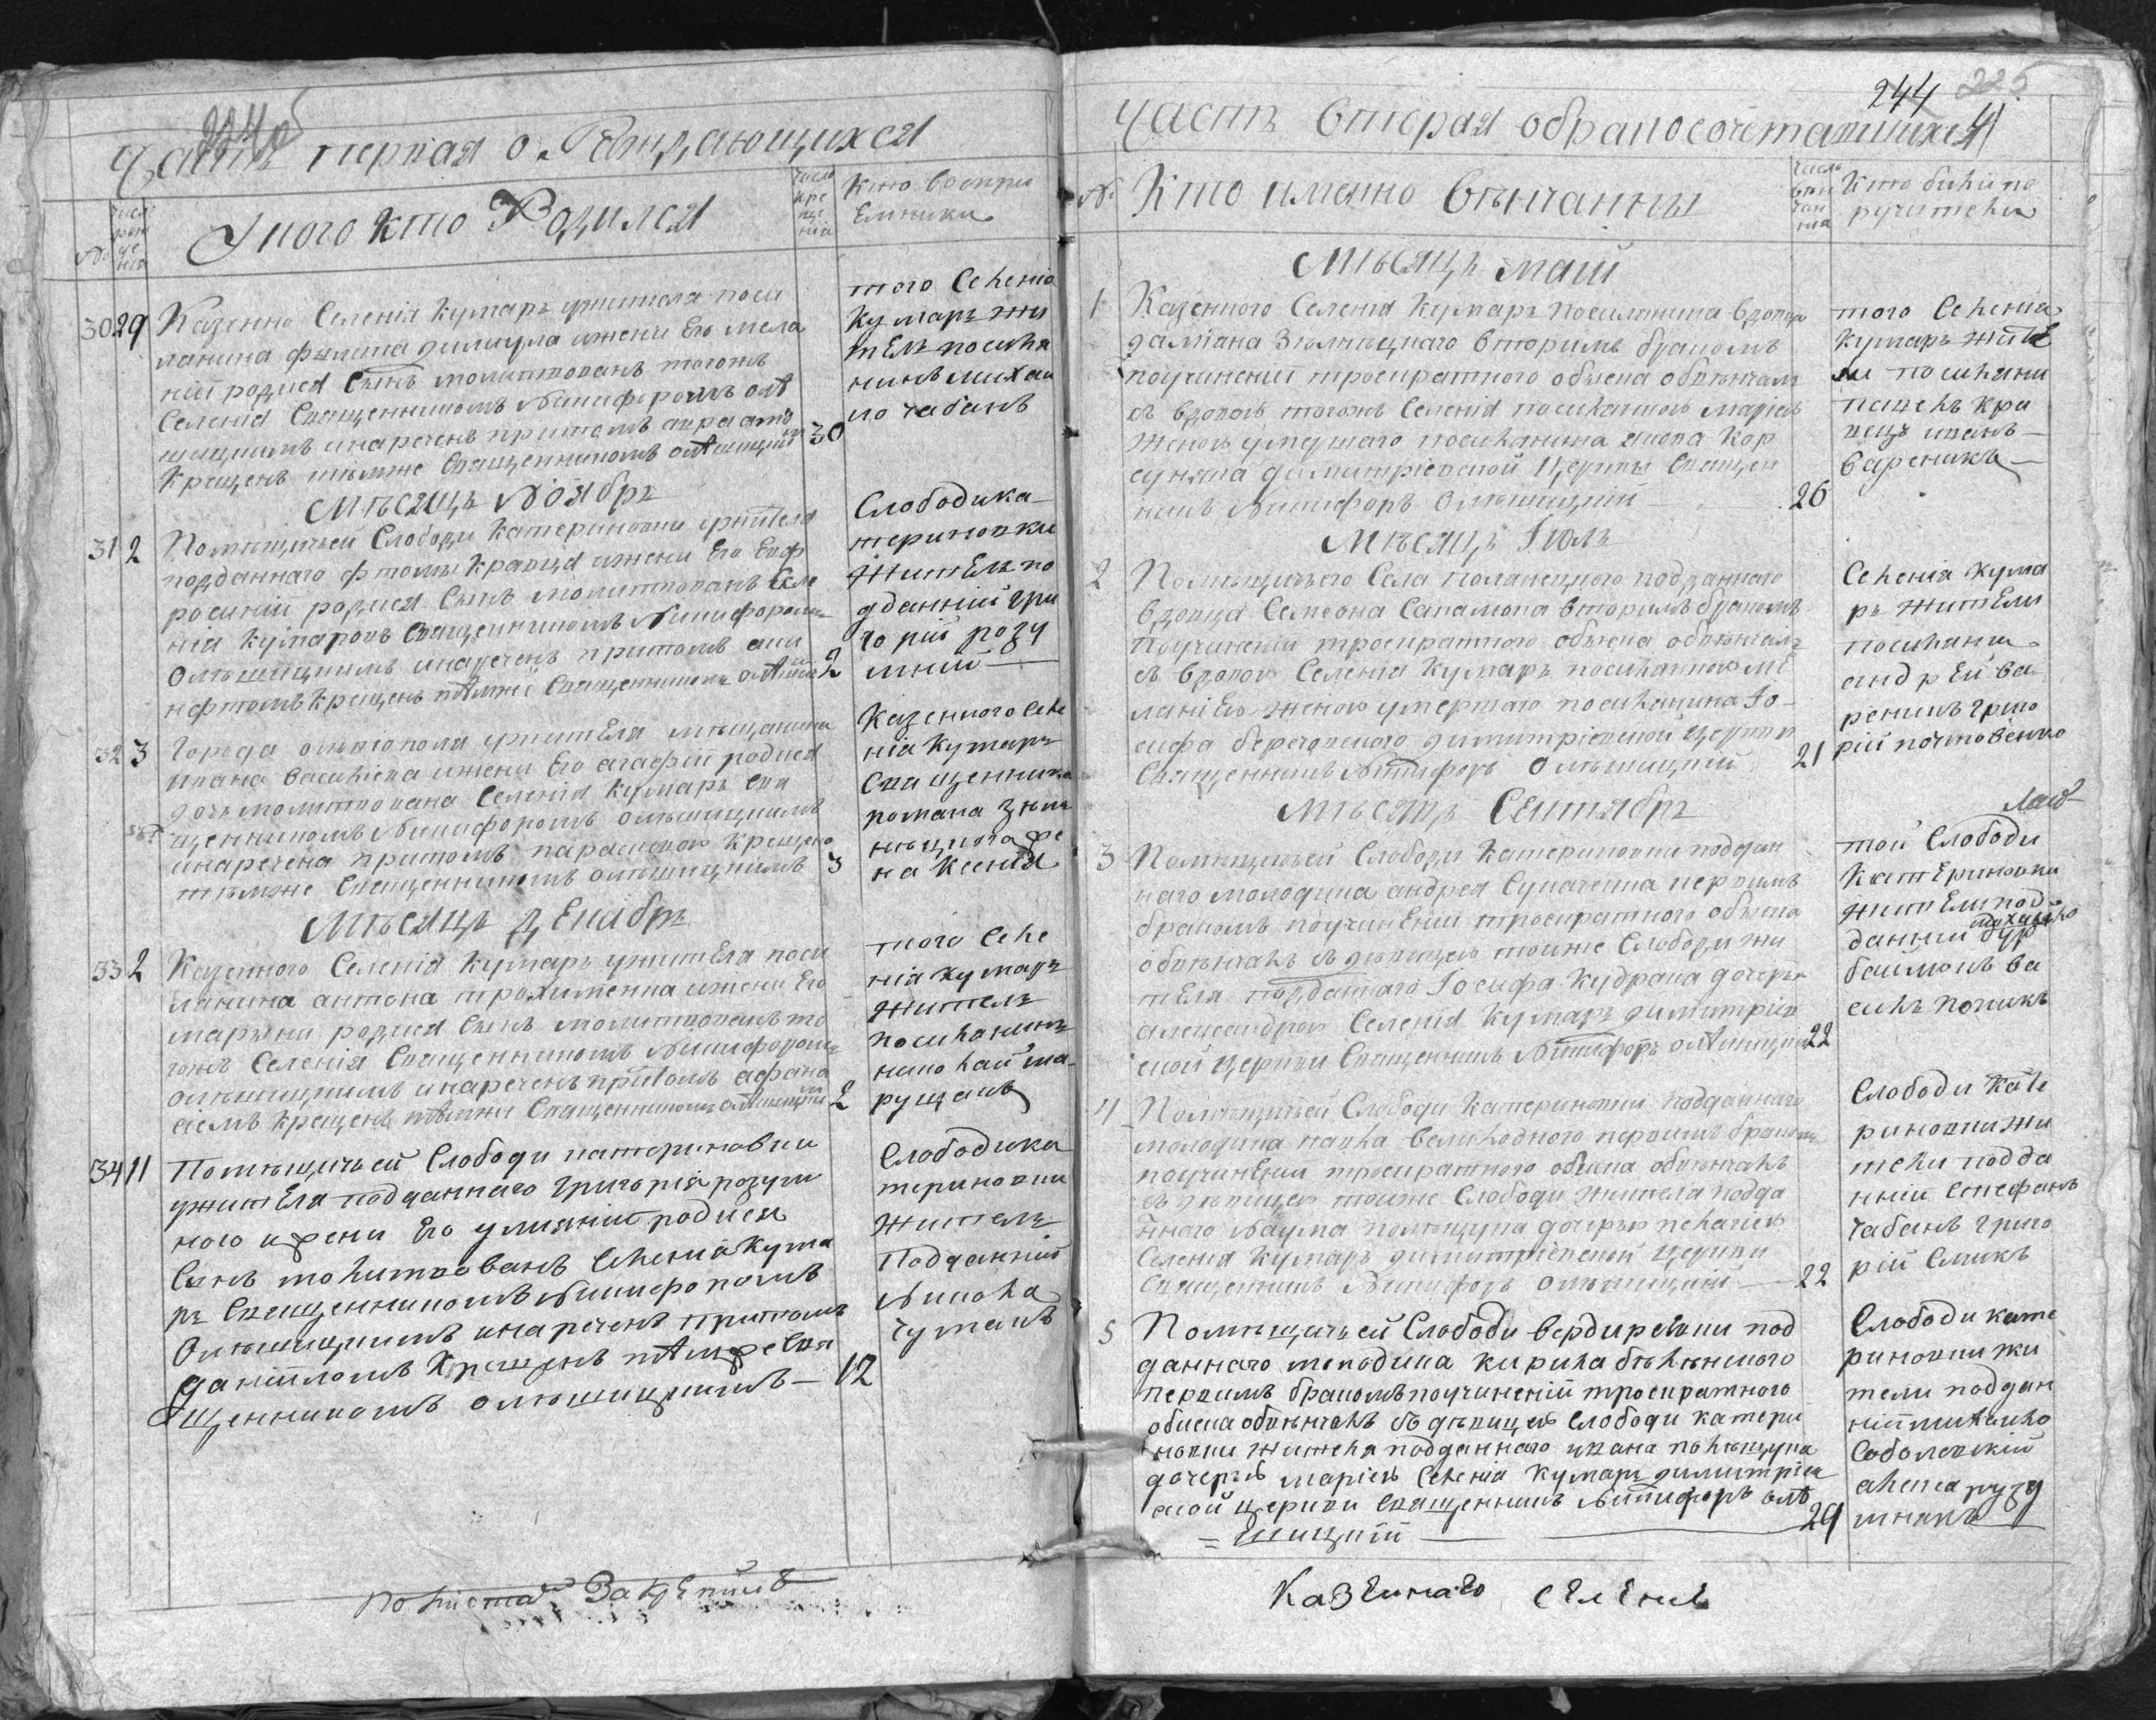 224об
Часть первая о Раждающихся
№
Числ рожде нія
У кого кто Родился
Числ кре ще нія
Кто воспри
емники
30 29 Казенно Селенія Кумаръ ужителя посе
лянина филипа димиула ижени Его мела
ніи родися Сынъ молитвованъ тогожъ
Селенія Священникомъ Никифоромъ олѣ
шицкимъ инареченъ притомъ авраамъ
Крещенъ имъже Священникомъ олѣшицкимъ 30
того Селенія
Кумаръ жи
тель поселя
нинъ михаи
ло чабанъ
Мѣсяцъ Ноябрь
31 2 Помѣщичьей Слободи Катериновки ужителя
подданнаго фтомы Кравця ижени Его Евф
росиніи родися Сынъ молитвованъ Селе
нія Кумаровъ Священникомъ Никифоромъ
Олѣшицкимъ инареченъ притомъ ани
нфтомъ Крещенъ тѣмже Священникомъ олѣшиц 2
Слободи ка
териновки
Житель по
дданний гри
горій розу
мний
32 3 Города ольвіополя ужителя мѣщанина
ивана василіева ижени Его агафіи родися
дочь молитвована Селенія Кумаръ Свя
щенникомъ Никифоромъ олѣшицкимъ
инаречена притомъ параскева Крещена
тѣмже Священникомъ олѣшицкимъ 3
Казенного Селе
нія Кумаръ
Священника
романа
же
на Ксенія
Мѣсяцъ Декабрь
33 2 Казенного Селенія Кумаръ ужителя посе
лянина антона трохименка ижени Его
марьяни родися Сынъ молитвованъ то
гожъ Селенія Священникомъ Никифоромъ
олѣшицкимъ инареченъ притомъ афана
сіемъ Крещенъ тѣмже Священникомъ олѣшицким 2
того Селе
нія Кумаръ
житель
поселянинъ
николай ма
рущакъ
34 11 Помѣщичьей Слободи катериновки
ужителя подданнаго григорія розум
ного ижени Его улияніи родися
Сынъ молитвованъ Селенія Кума
ръ Священникомъ Никифоромъ
Олѣшицкимъ инареченъ притомъ
даніиломъ Крещенъ тѣмже Свя
щенникомъ олѣшицкимъ — 12
Слободи ка
териновки
житель
Подданній
Никола
чумакъ
По листамъ Закрепилъ
244 225
Часть вторая обракосочетавшихся
№ Кто именно вѣнчанны
Числ вѣн чан ия
Кто били по
ручители
Мѣсяцъ маій
1 Казенного Селенія Кумаръ поселянина вдовца
даміана вторимъ бракомъ
поучиненіи троекратного обиска обвѣнчалъ
съ вдовою тогожъ Селенія поселянкою маріею
женою умершаго поселянина якова Кор
суняка димитріевской Церкви Священ
никъ Никифоръ Олѣшицкій 26
того Селенія
Кумаръ жите
ли поселяни
павелъ кра
вецъ иванъ
вареникъ
Мѣсяцъ Іюль
2 Помѣщичьего Села поланецкого подданнаго
вдовца Семеона Саламона вторимъ бракомъ
поучиненіи троекратного обиска обвѣнчалъ
съ вдовою Селенія Кумаръ поселянкою ме
ланіею женою умершаго поселянина Іо
сифа димитріевской Церкви
Священникъ Никифоръ Олѣшицкій 21
Селенія Кума
ръ жители
поселяни
андрей ва
реникъ григо
рій почтовенко
Мѣсяцъ Сентябрь
3 Помѣщичьей Слободи Катериновки поддан
наго молодика андрея Супаченка первимъ
бракомъ поучинении троекратного обиска
обвѣнчалъ съ дѣвицею тоиже Слободи жи
теля подданнаго Іосифа Кудрана дочерью
александрою Селенія Кумаръ димитріев
ской Церкви Священникъ Никифоръ олѣшицкий 22
той Слободи
Катериновки
жители под
данни
ва
силь
4 Помѣщичьей Слободи Катериновки подданнаго
молодика павла великодного первимъ бракомъ
поучинении троекратного обиска обвѣнчалъ
съ дѣвицею тоиже Слободи жителя подда
нного Наума полѣщука дочерью пелагіею
Селенія Кумаръ димитріевской Церкви
Священникъ Никифоръ олѣшицкій 22
Слободи Кате
риновки жи
тели подда
нніи Стефанъ
чабанъ григо
рій Смикъ
5 Помѣщичьей Слободи под
даннаго молодика кирила бѣленкого
первимъ бракомъ поучиненій троекратного
обиска обвѣнчалъ съ дѣвицею Слободи катери
новки жителя подданнаго ивана полѣщука
дочерью маріею Селенія Кумаръ димитріев
ской Церкви Священникъ Никифоръ олѣ
= шицкій 29
Слободи кате
риновки жи
тели поддан
ніи михаило
Соболевскій
алекса
Казеннаго селение